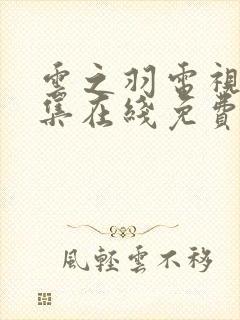 雲之羽電視
集在綫免費
風輕雲不移